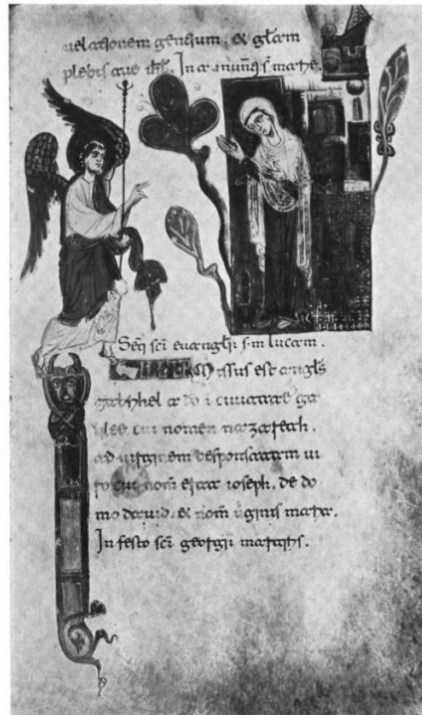 uelationem gentium. & głam
plebis tue isł. In annunt s marie.
Seq sci euanglii s m lucam.
Missus est angls
gabrihel a do i ciuitate ga
lilee cui nomen nazareth.
ad uirginem desponsatam ui
ro cui nom erat ioseph. de do
mo dauid. & nom uginis maria.
In festo sci georgii martyris.